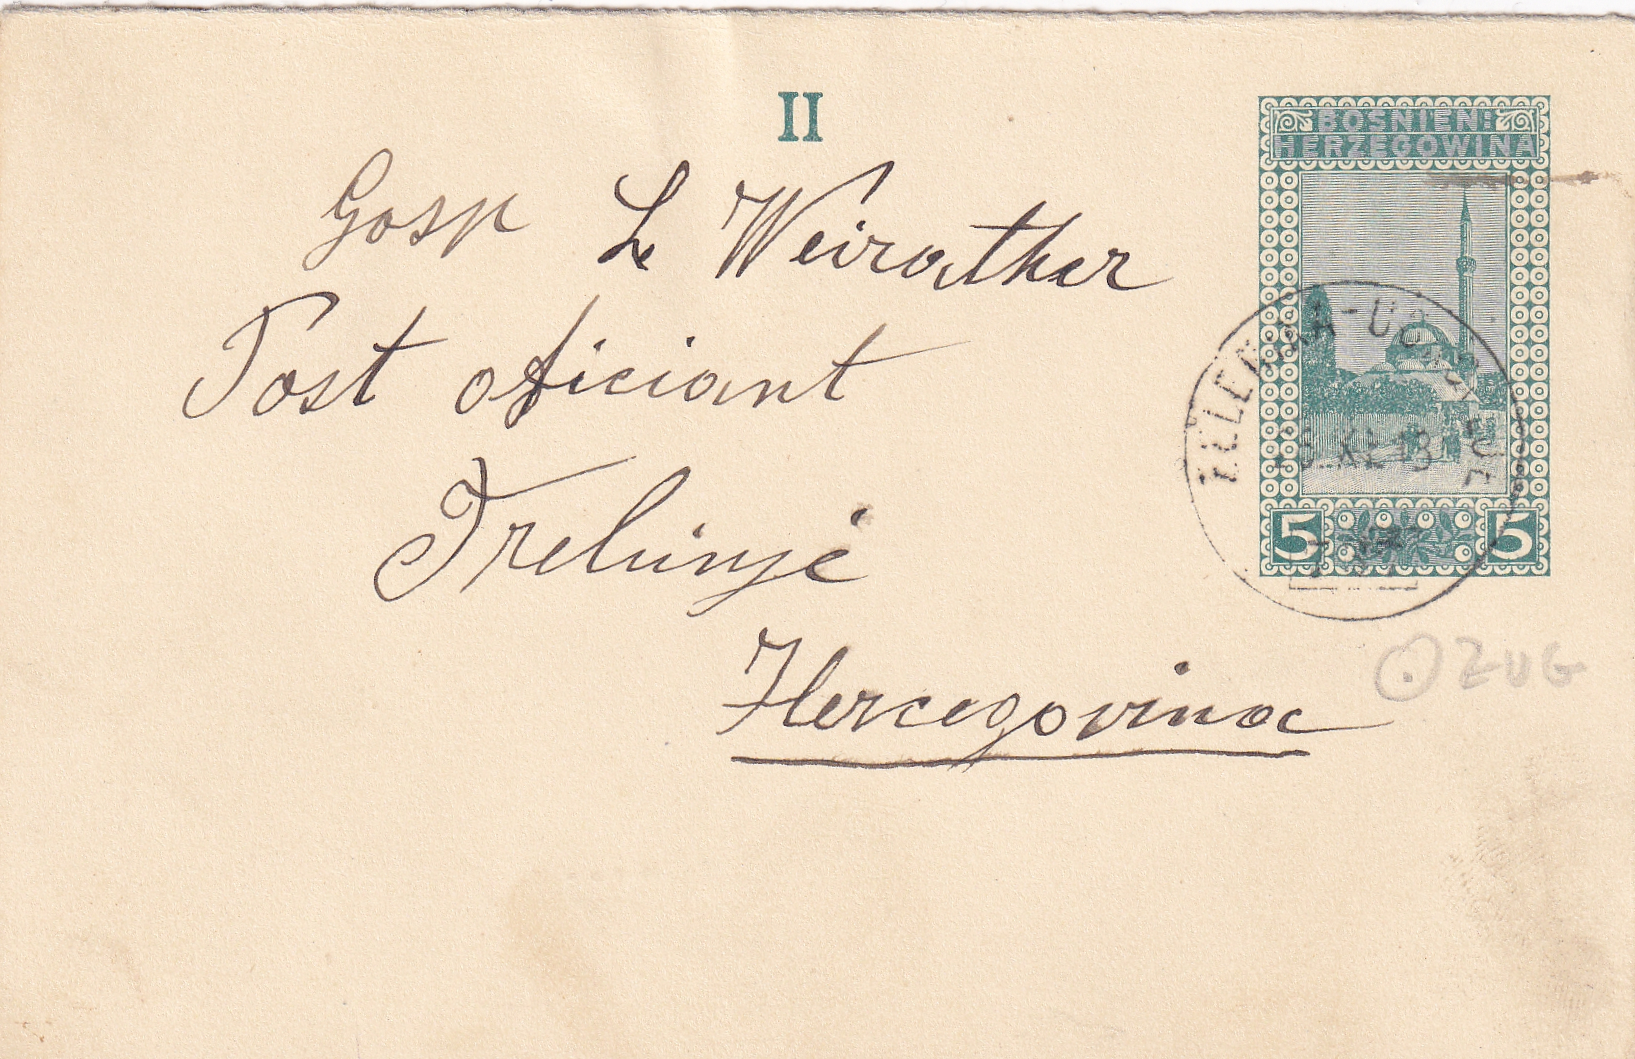 II
BOSNIEN:
HERZEGOWINA
Gosp L Weirather
Post oficiant
Trebinje
Hercegovina
ZELENIKA-
XI 13
5 5
ZUG